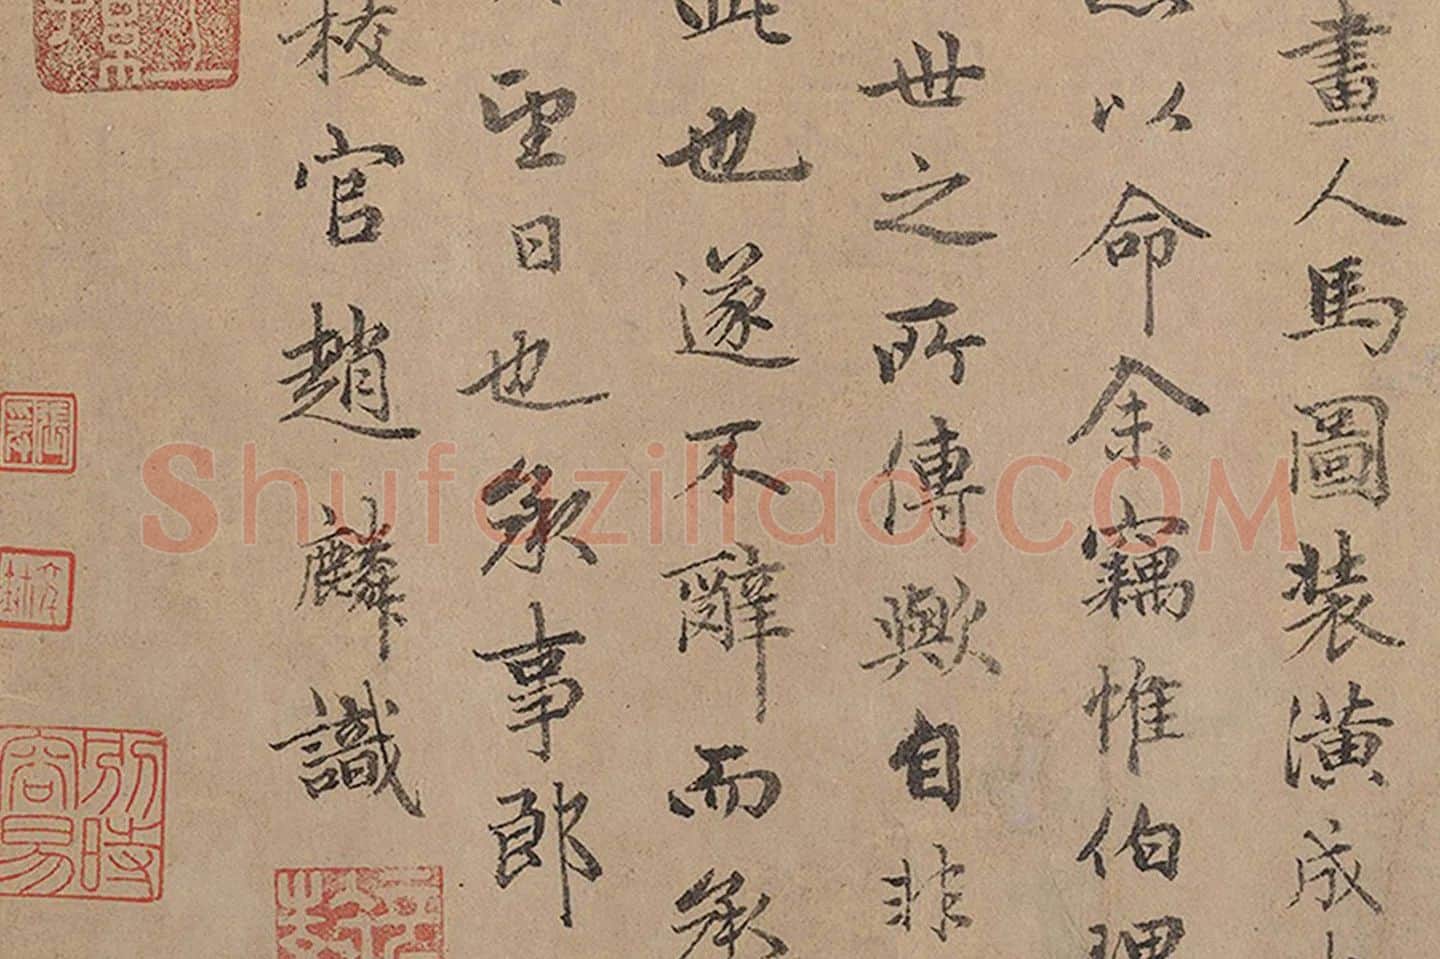 畫人馬圖裝潢成
以命余竊惟伯理
世之所傳歟自非
此也遂不辭而承
望日也承事郎
校官趙麟識
別時容易
ShufaziHao.COM